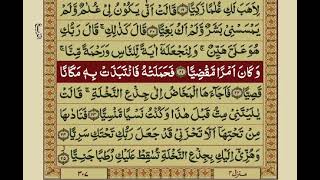 لِاَهَبَ لَكِ غُلٰمًا زَكِيًّا ۝۱۹ قَالَتْ اَنّٰى يَكُوْنُ لِيْ غُلٰمٌ وَّلَمْ
يَمْسَسْنِيْ بَشَرٌ وَّلَمْ اَكُ بَغِيًّا ۝۲۰ قَالَ كَذٰلِكِ ۚ قَالَ رَبُّكِ
هُوَ عَلَيَّ هَيِّنٌ ۚ وَلِنَجْعَلَهٗۤ اٰيَةً لِّلنَّاسِ وَرَحْمَةً مِّنَّا ۚ
وَكَانَ اَمْرًا مَّقْضِيًّا ۝۲۱ فَحَمَلَتْهُ فَانْتَبَذَتْ بِهٖ مَكَانًا
قَصِيًّا ۝۲۲ فَاَجَآءَهَا الْمَخَاضُ اِلٰى جِذْعِ النَّخْلَةِ ۚ قَالَتْ
يٰلَيْتَنِيْ مِتُّ قَبْلَ هٰذَا وَكُنْتُ نَسْيًا مَّنْسِيًّا ۝۲۳ فَنَادٰىهَا
مِنْ تَحْتِهَاۤ اَلَّا تَحْزَنِيْ قَدْ جَعَلَ رَبُّكِ تَحْتَكِ سَرِيًّا ۝۲۴
وَهُزِّيْۤ اِلَيْكِ بِجِذْعِ النَّخْلَةِ تُسٰقِطْ عَلَيْكِ رُطَبًا جَنِيًّا ۝۲۵
منزل ۴
۳۰۷